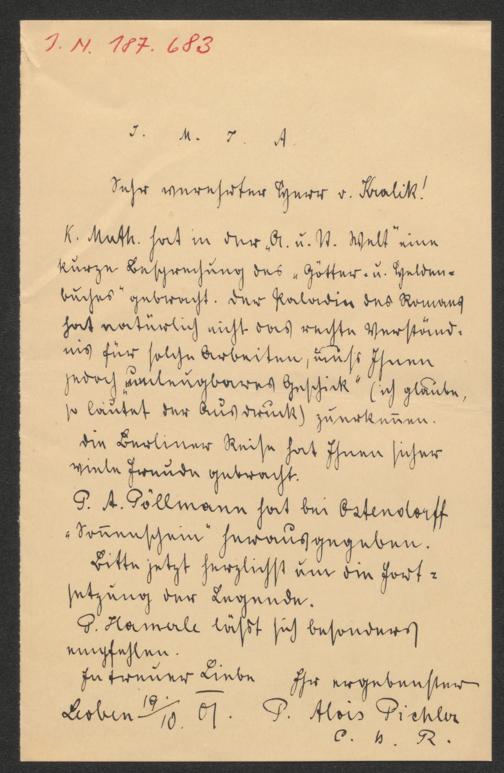 J. N. 187.683
J. M. J. A.
Sehr verehrter Herr v. Kralik!
K. Muth. hat in der „A. u. N. Welt" eine
kurze Besprechung des „Götter- u. Helden-
buches" gebracht. Der Paladin des Romans
hat natürlich nicht das rechte Verständ-
nis für solche Arbeiten, muß Ihnen
jedoch „unleugbares Geschick" (ich glaube,
so lautet der Ausdruck) zuerkennen.
Die Berliner Reise hat Ihnen sicher
viele Freude gebracht.
P. A. Pöllmann hat bei Ostendorff
„Sonnenschein" herausgegeben.
Bitte jetzt herzlichst um die Fort-
setzung der Legende.
P. Hamerle läßt sich besonders
empfehlen.
In treuer Liebe Ihr ergebenster
Leoben 19/10. 01. P. Alois Pichler
C. Ss. R.